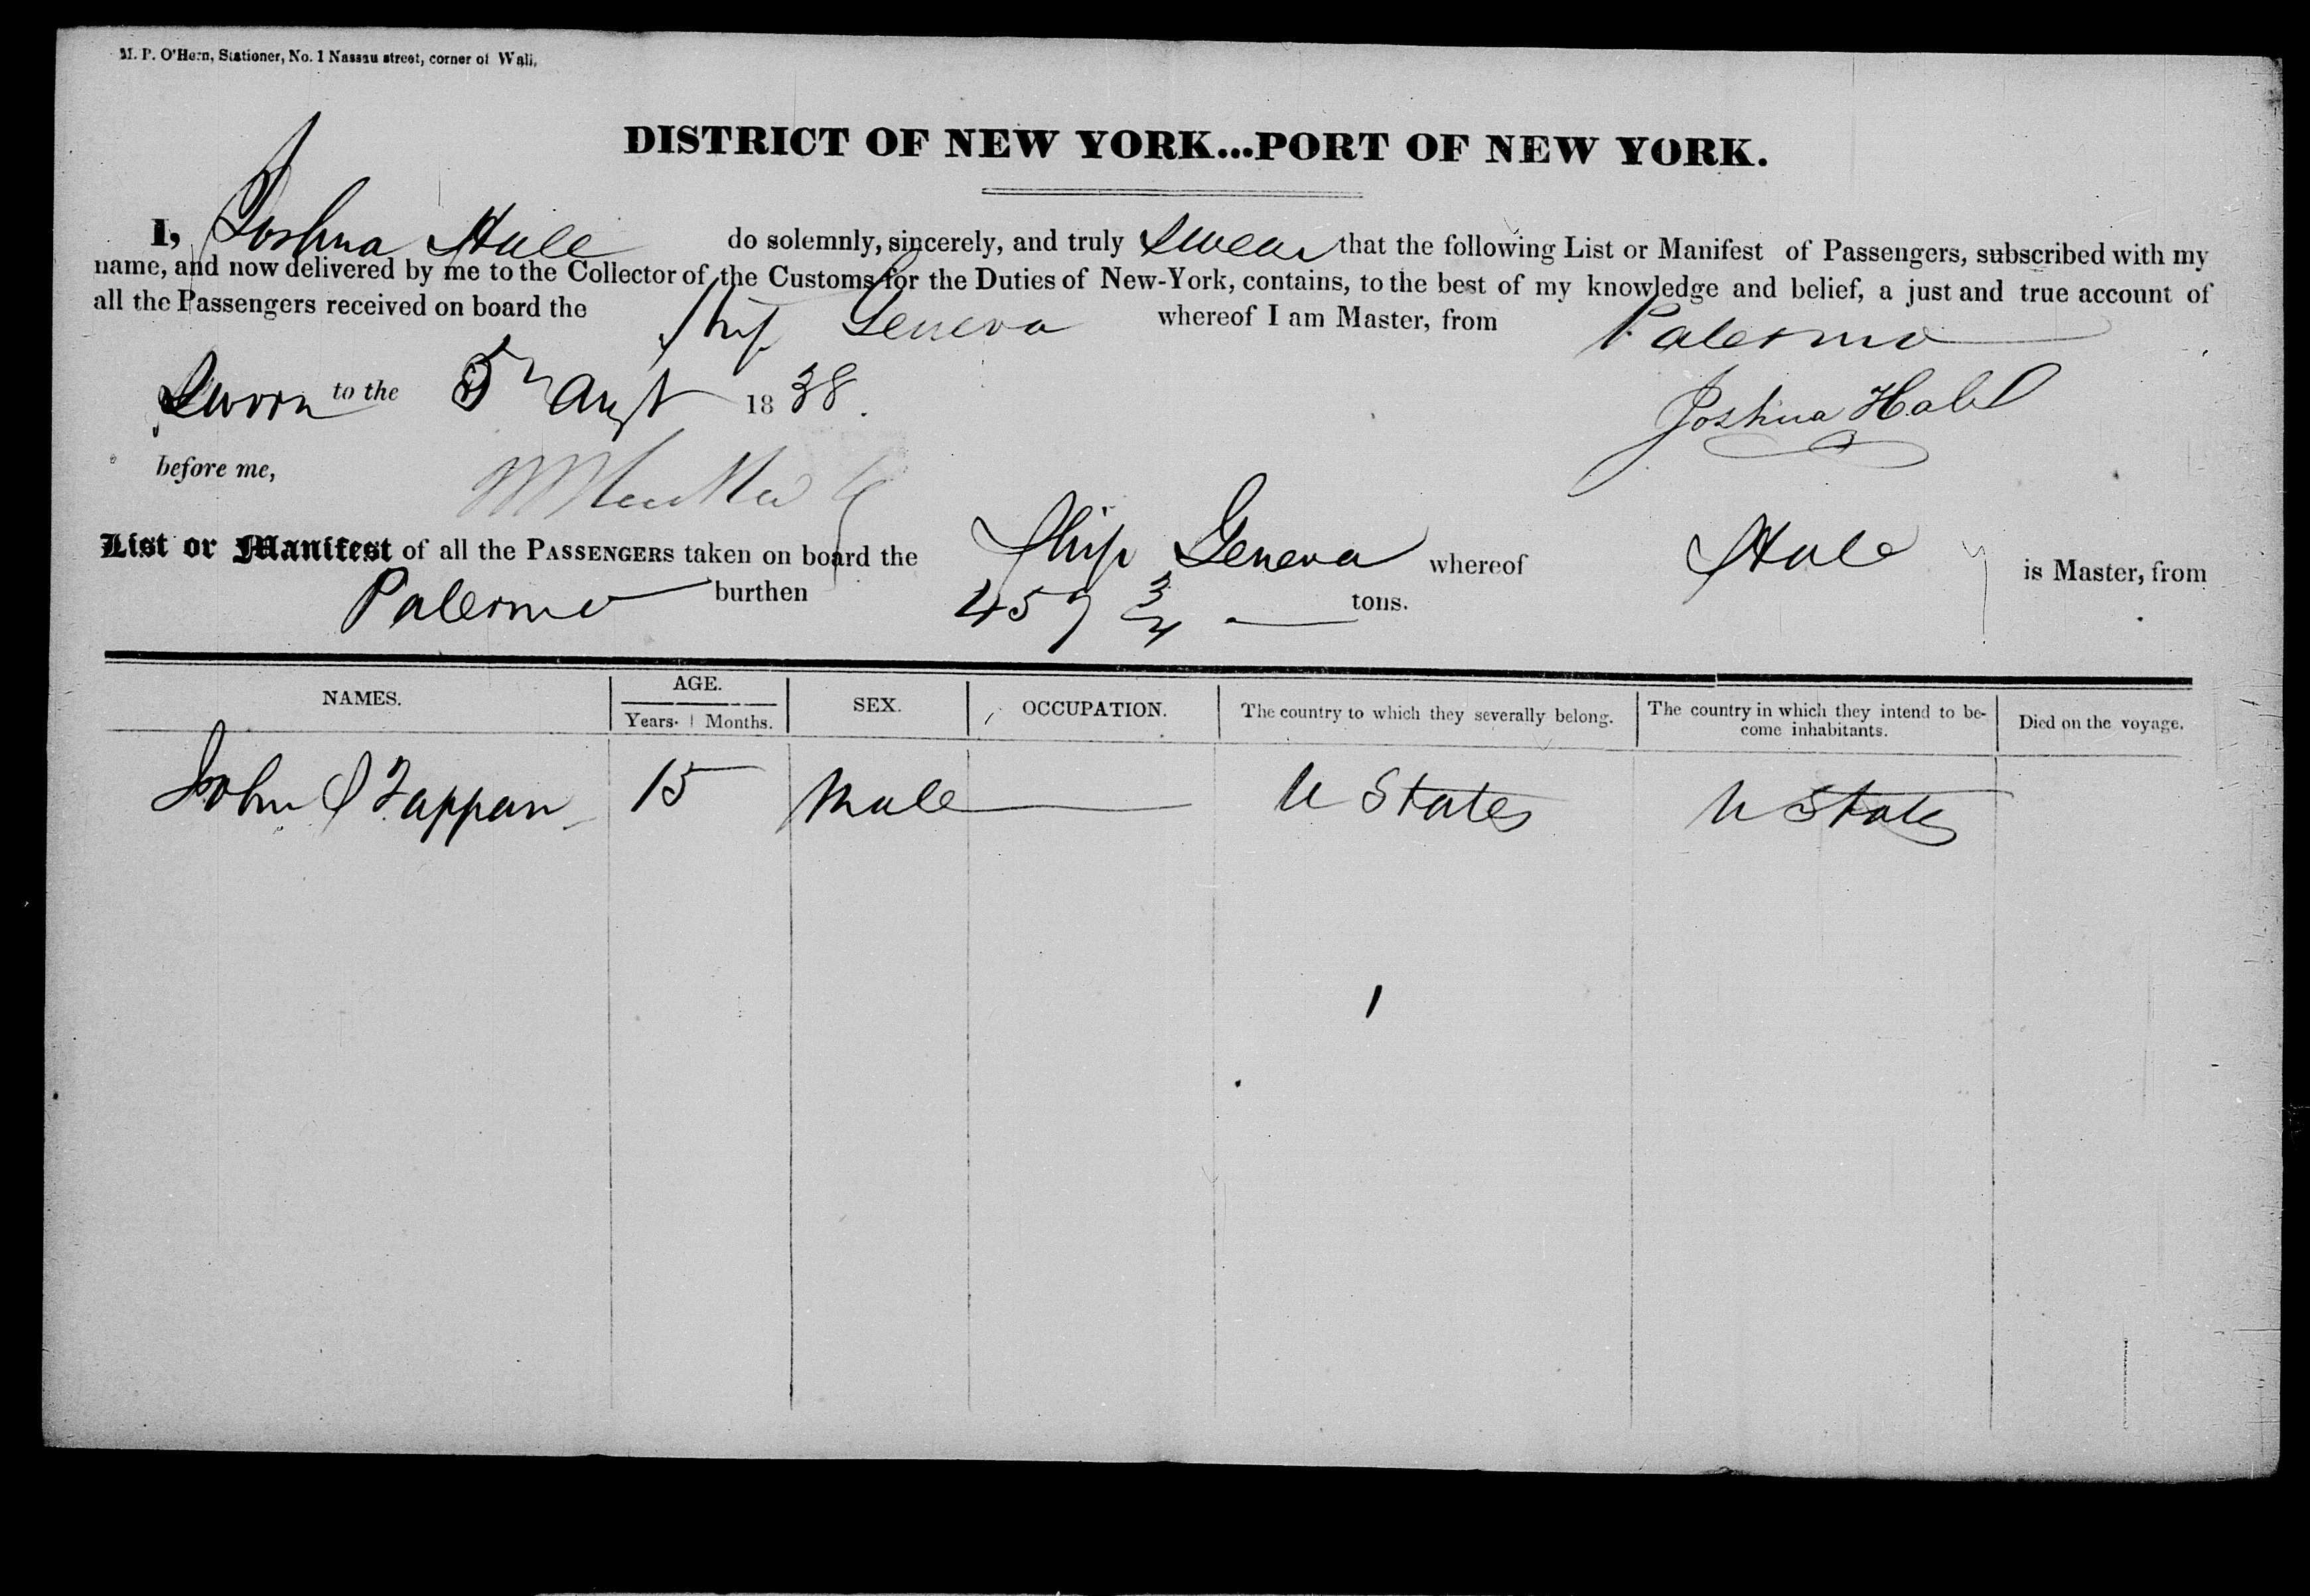 M. P. O'Hern, Stationer, No. 1 Nassau street, corner of Wall,
DISTRICT OF NEW YORK...PORT OF NEW YORK.
I, Joshua Hale do solemnly, sincerely, and truly swear that the following List or Manifest of Passengers, subscribed with my
name, and now delivered by me to the Collector of the Customs for the Duties of New-York, contains, to the best of my knowledge and belief, a just and true account of
all the Passengers received on board the Ship Geneva whereof I am Master, from Palermo
Sworn to the Augt 1838.
Joshua Hale
before me,
List or Manifest of all the PASSENGERS taken on board the Ship Geneva whereof Hale is Master, from
Palermo burthen 457 3/4 tons.
NAMES. AGE. SEX. OCCUPATION. The country to which they severally belong. The country in which they intend to be- Died on the voyage.
Years. Months. come inhabitants.
John S Tappan 15 Male U States U States
1